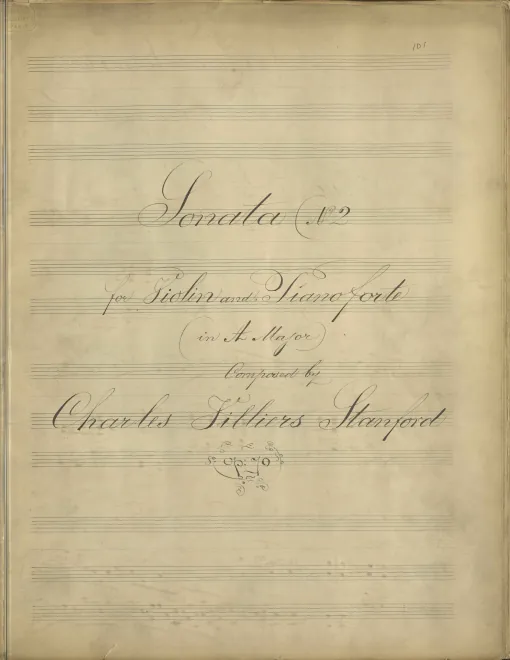 101
Sonata (No 2
for Violin and Pianoforte
(in A Major)
Composed by
Charles Villiers Stanford